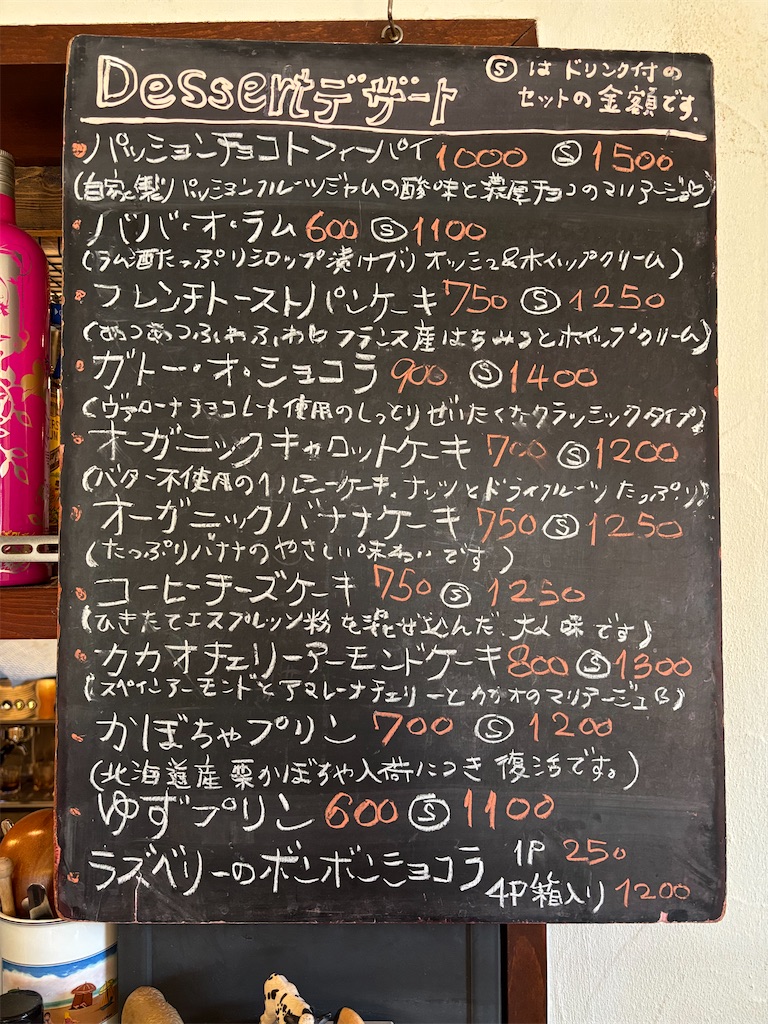 Dessertデザート
Ⓢはドリンク付の
セットの金額です。
パッションチョコトフィーパイ 1000 Ⓢ1500
(自家製パッションフルーツジャムの酸味と濃厚チョコのマリアージュ♡)
ババ・オ・ラム 600 Ⓢ1100
(ラム酒たっぷりシロップ漬けブリオッシュ&ホイップクリーム)
フレンチトーストパンケーキ 750 Ⓢ1250
(あつあつふわふわ♡フランス産はちみつとホイップクリーム)
ガトー・オ・ショコラ 900 Ⓢ1400
(ヴァローナチョコレート使用のしっとりぜいたくなクラッシックタイプ)
オーガニックキャロットケーキ 700 Ⓢ1200
(バター不使用のヘルシーケーキ。ナッツとドライフルーツたっぷり)
オーガニックバナナケーキ 750 Ⓢ1250
(たっぷりバナナのやさしい味わいです)
コーヒーチーズケーキ 750 Ⓢ1250
(ひきたてエスプレッソ粉を混ぜ込んだ大人味です)
カカオチェリーアーモンドケーキ 800 Ⓢ1300
(スペインアーモンドとアマレーナチェリーとカカオのマリアージュ♡)
かぼちゃプリン 700 Ⓢ1200
(北海道産栗かぼちゃ入荷につき復活です。)
ゆずプリン 600 Ⓢ1100
ラズベリーのボンボンショコラ 1P 250
4P箱入り 1200